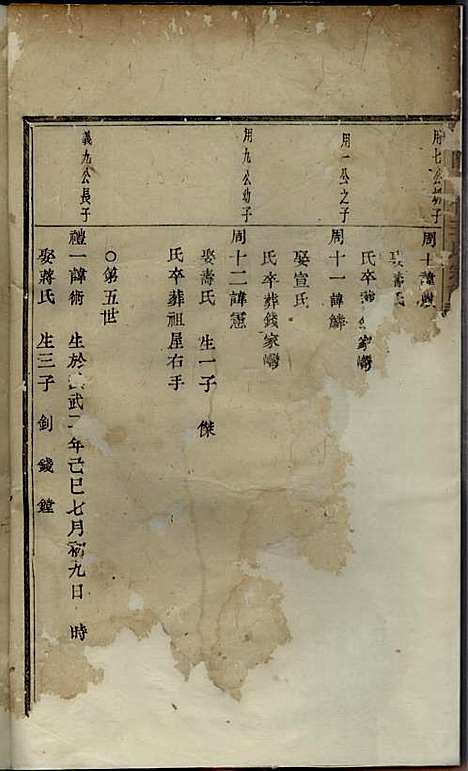 用七公幼子
周十諱
娶壽氏
氏卒葬家塆
用一公之子
周十一諱鱗
娶宣氏
氏卒葬錢家塆
用九公幼子
周十二諱憲
娶壽氏 生一子 傑
氏卒葬祖屋右手
○第五世
義九公長子
禮一諱術 生於武年己巳七月初九日 時
娶蔣氏 生三子 釗 錢 鏜